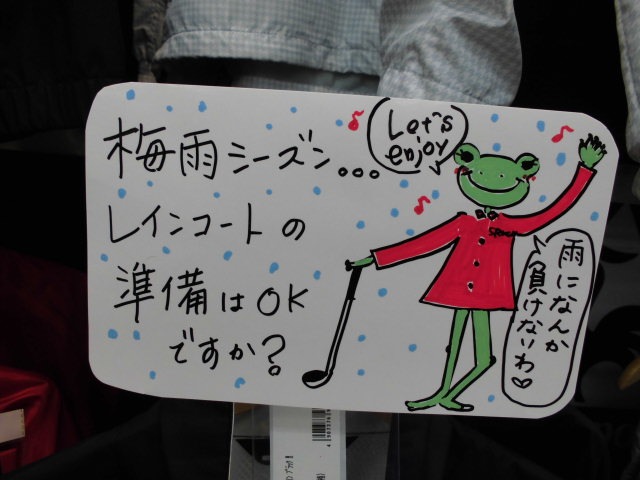 梅雨シーズン...
レインコートの
準備はOK
ですか?
Let's
enjoy
雨になんか
負けないわ♡